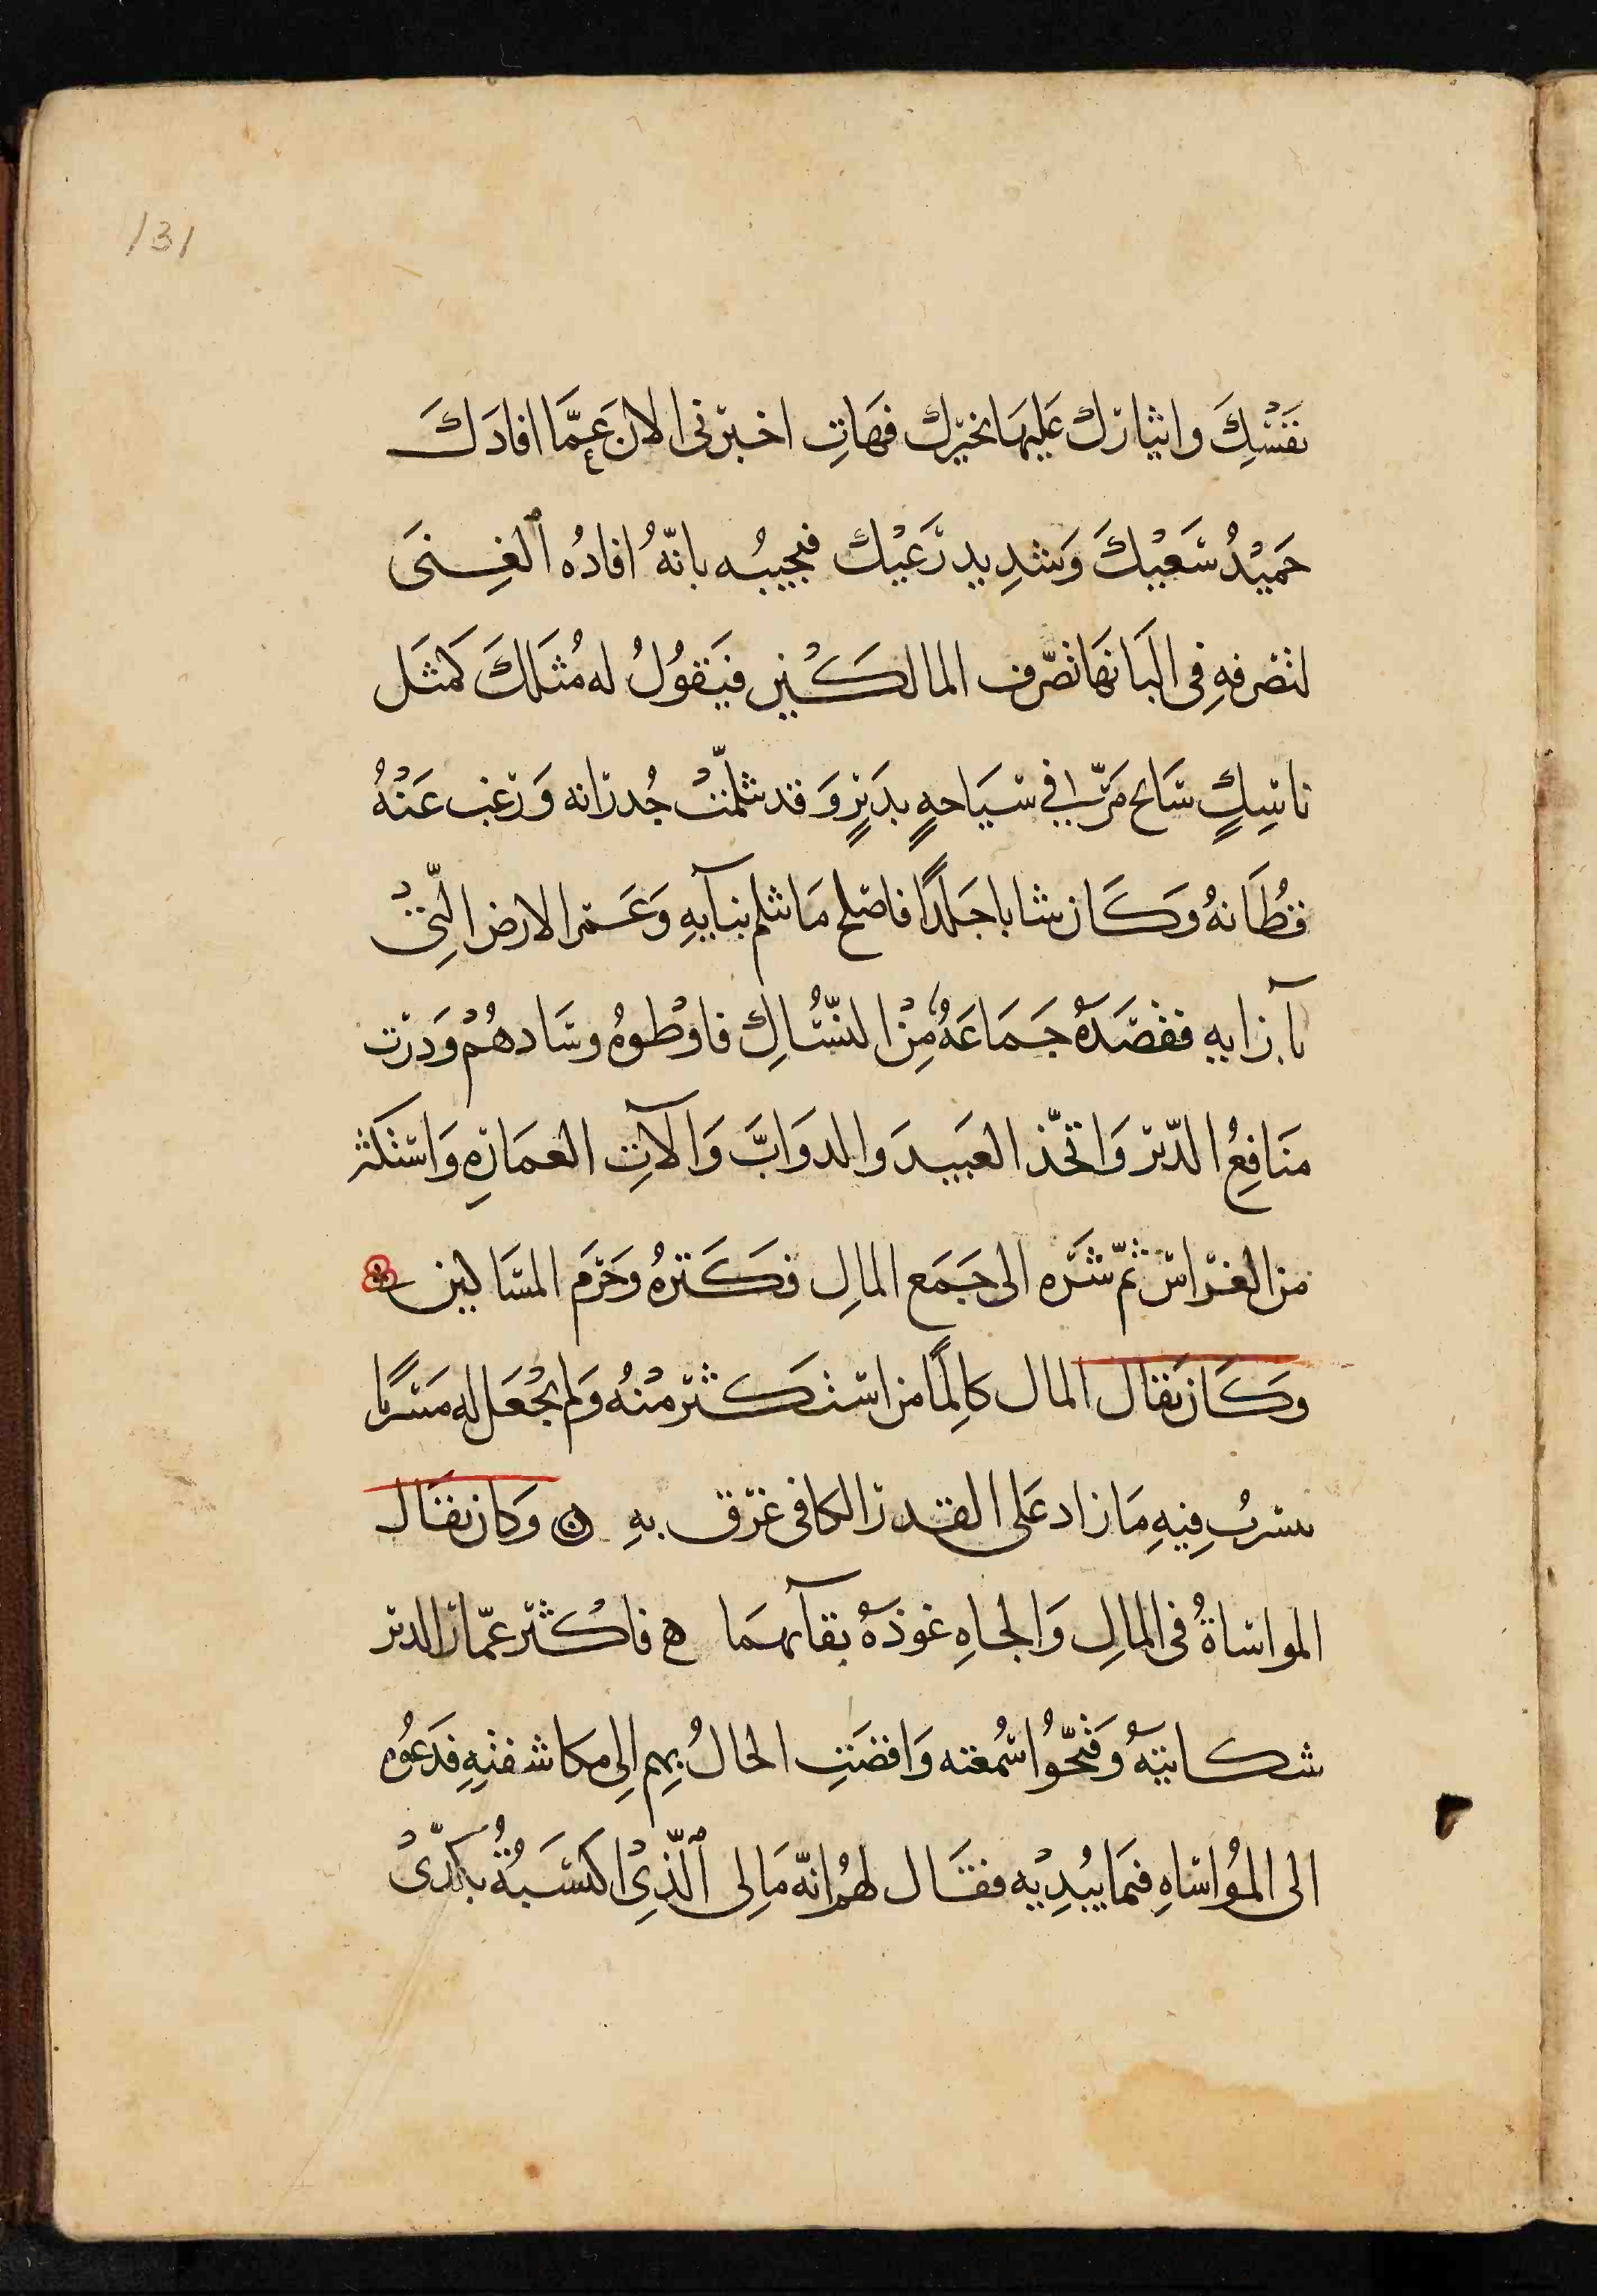 131
نفسْكِ وايثارك عَليهَا بخيرك فهَاتِ اخبرنى الان عَمَّا افادَكَ
حَميْدُ سَعْيكَ وَشدِيد رَعْيك فيجيبُه بانّهُ افادُه الغِنىَ
لتصرفهِ فى البَانهَا تصَّرف المالكين فيَقوُلُ له مُثَلكَ كمثَل
ناسِكٍ سَايح مَرَّ فى سيَاحهٍ بدَيرٍ وَقد ثلمّتْ جُدرَانه وَرَغب عَنْهُ
قطُانهُ وكَان شابا جَلدًا فاصَلح مَا ثلم بنآيهِ وَعَمَر الارض الّتِى
بآزايهِ فقصَدَهُ جَمَاعَهُ مِنْ النسُّاكِ فاوْطوهُ وسَادهُمْ وَدَرَت
مَنَافِعُ الدَير وَاتخّذ العَبيدَ والدوَابَّ وَالآتِ العمَارَهِ وَاستكثر
من الغرَاس ثمّ شَرَه الى جَمَع المالِ فكَنزهُ وحَرَم المسَاكين
وكَان يقَال المال كالِمًا من استكثر منْهُ وَلم يجْعَل له مَسَربًا
يسربُ فِيهِ مَا زاد عَلى القدر الكافى غرَق بهِ وَكان يقَال
المواسَاةُ فى المالِ وَالجاهِ عُوذهُ بقآيهمَا فاكثر عمّار الدير
شكايتهُ وَقبحّوُا سُمعته وَافضَتِ الحالُ بِهم الِى مكاشفتِهِ فدَعَوُه
الى الموُاسَاهِ فيمَا يبدِيه فقَال لهمُ انهّ مَالِى الّذِى اكتسَبتُهُ بكدّىْ